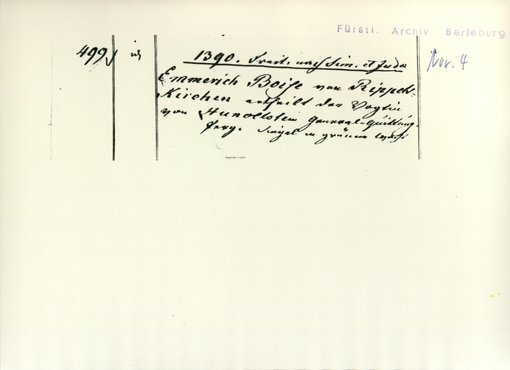 Fürstl. Archiv Berleburg
Nov. 4
499)
1390. Freit. nach Sim. et Judae
Emmerich Boise von Rippels-
Kirchen ertheilt der Vogtin
von Hunoltstein General-Quittung
Perg. Siegel in grünem Wachs